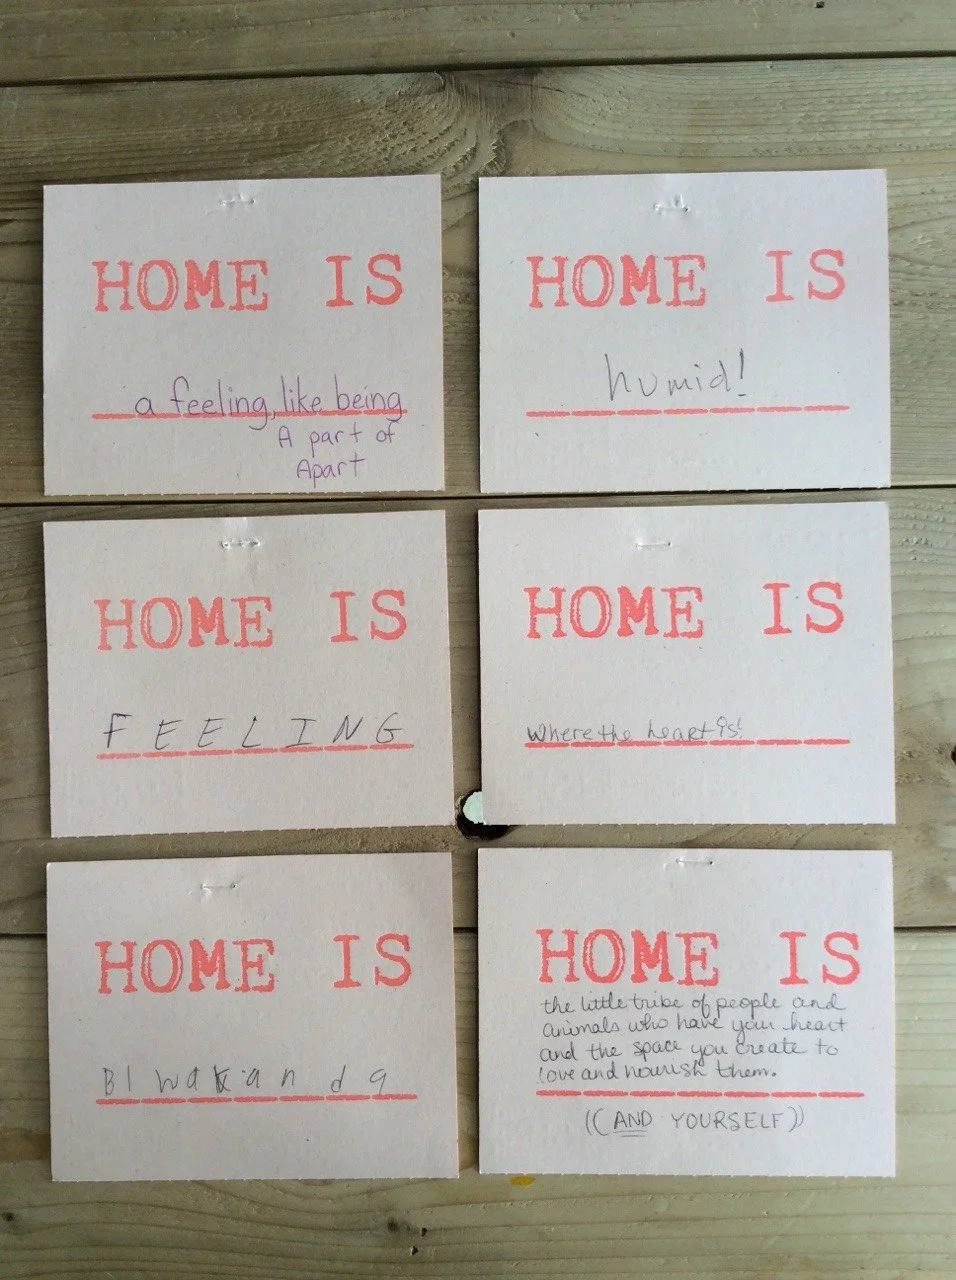 HOME IS
a feeling, like being
A part of
Apart
HOME IS
humid!
HOME IS
FEELING
HOME IS
Where the heart is!
HOME IS
Bl wakanda
HOME IS
the little tribe of people and
animals who have your heart
and the space you create to
love and nourish them.
((AND YOURSELF))